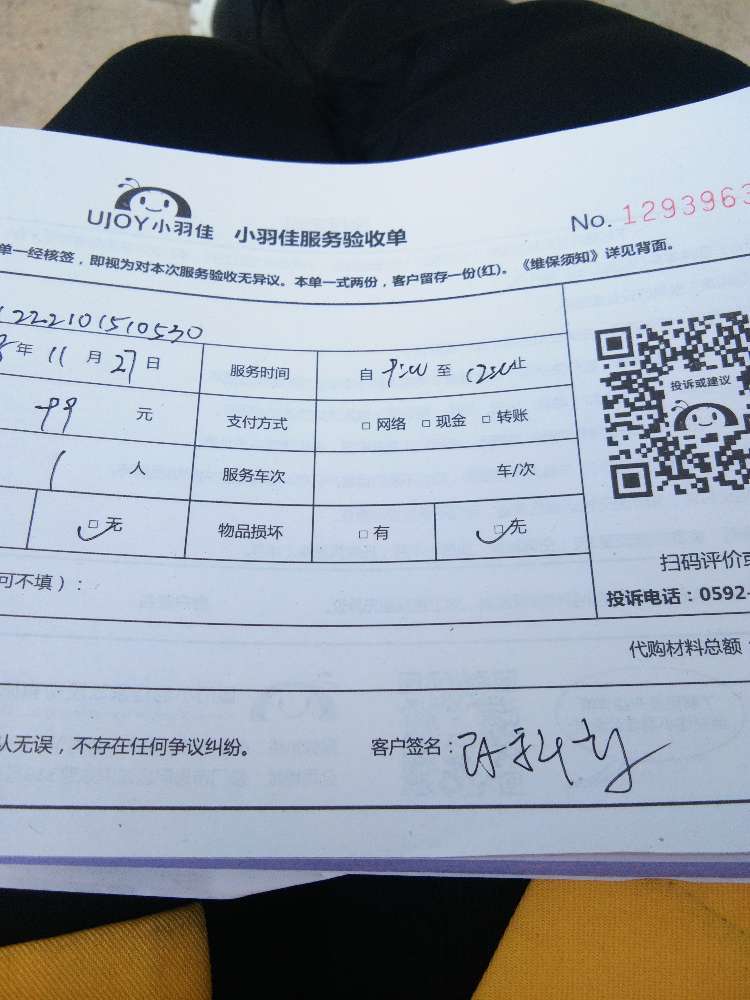 UJOY小羽佳 小羽佳服务验收单
No. 1293963
单一经核签，即视为对本次服务验收无异议。本单一式两份，客户留存一份(红)。《维保须知》详见背面。
222101510530
年 11 月 27 日 服务时间 自 9:00 至 12:00 止
投诉或建议
99 元 支付方式 □ 网络 □ 现金 □ 转账
1 人 服务车次 车/次
□ 无 物品损坏 □ 有 □ 无
扫码评价或
可不填）：
投诉电话：0592-
代购材料总额：
认无误，不存在任何争议纠纷。 客户签名：